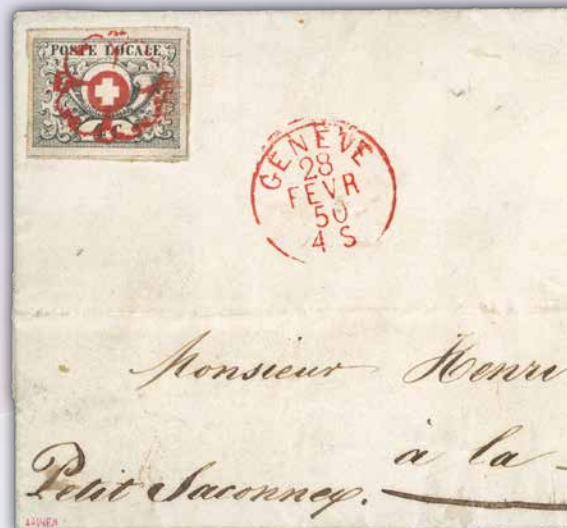 POSTE LOCALE
4 C.
GENÈVE
28
FEVR
50
4 S
Monsieur Henri
à la
Petit Saconnex.